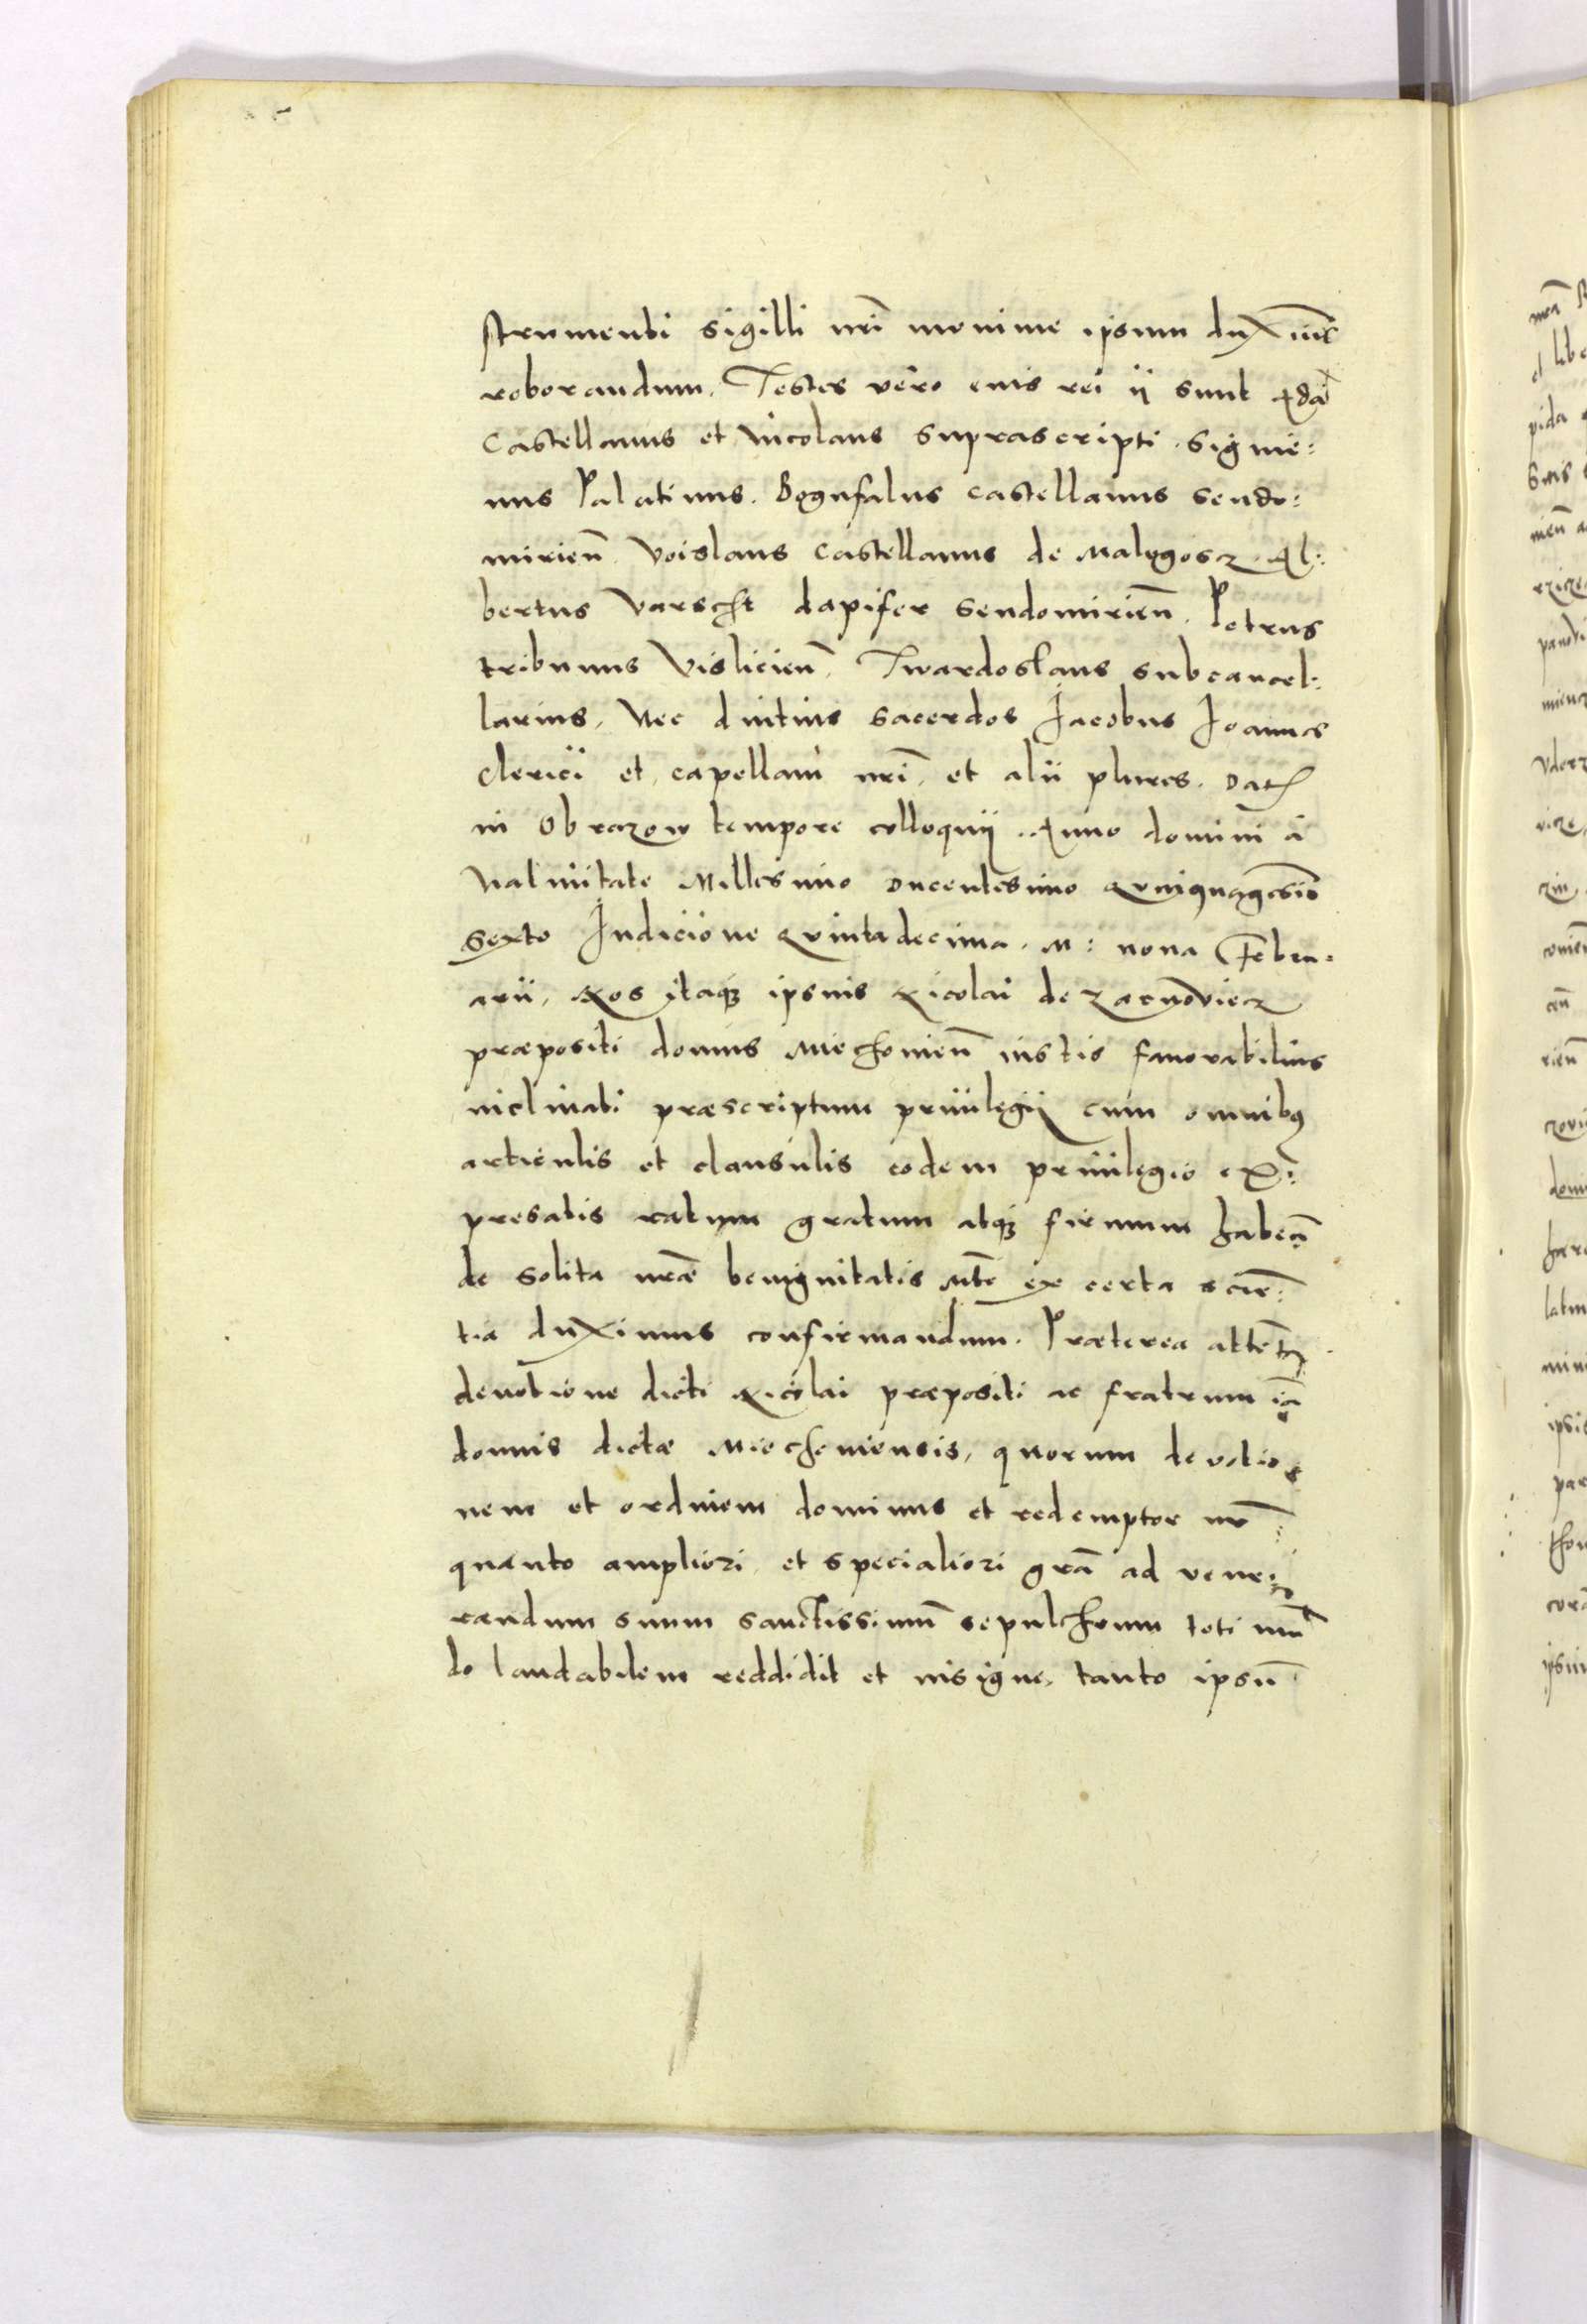 strumenti sigilli nrī monime ipsum duximꝰ
roborandum. Testes vero cuis rei ij sunt Adā
Castellanus et Nicolaus suprascripti. Signie:
uus Palatinus. Bogufalus castellanus Sendo:
mirień Voislaus castellanus de Malogosz. Al:
bertus Varscht dapifer Sendomirień. Petrus
tribunus Vislicień, Twardoslaus subcancel:
larius. Nec diutius sacerdos Jacobus Joannes
clerici et capellani nrī, et alii plures. Dat
in Obrazow tempore colloquij. Anno domini à
Natiuitate Millesimo ducentesimo Quinquagesīo
sexto Indicione Quinta decima. M: nona Febru:
arii. Nos itaq; ipsius Nicolai de Zarnoviecz
præpositi domus Miechouień iustis fauorabilius
inclinati præscriptum priuilegij cum omnibꝰ
articulis et clausulis eodem priuilegio ex:
presatis ratum gratum atq; firmum habeń
de solita nræ benignitatis Mte ex certa scīe:
tia duximus confirmandum. Præterea attēta
deuotione dicti Nicolai præpositi ac fratrum iā
domus dictæ Miechouiensis, quorum deuotio
nem et ordinem dominus et redemptor nr̄
quanto ampliori et specialiori grā ad vene:
randum suum sanctissimū sepulchrum toti mū
do laudabilem reddidit et insigne, tanto ipsū